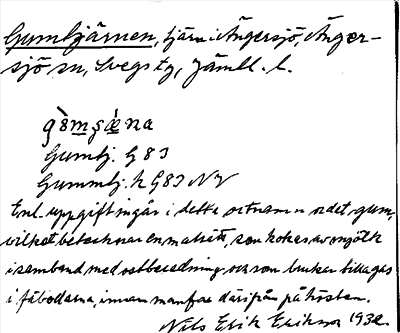 Gumtjärnen, tjärn i Ängersjö, Änger-
sjö sn, Svegs tg, Jämtl. l.
Gumtj. G 83
Gummtj. k G83 NV
Enl. uppgift ingår i detta ortnamn ordet gum,
vilket betecknar en maträtt, som kokas av mjölk
i samband med ostberedning och som brukar tillagas
i fäbodarna, innan man for därifrån på hösten.
Nils Erik Eriksson 1932.